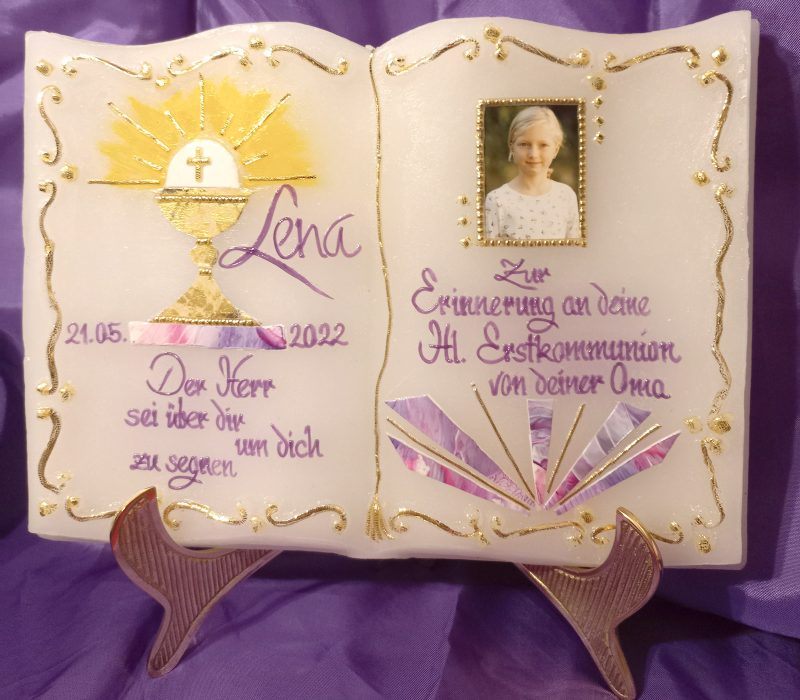 Lena
21.05. 2022
Der Herr
sei über dir
um dich
zu segnen
Zur
Erinnerung an deine
Hl. Erstkommunion
von deiner Oma